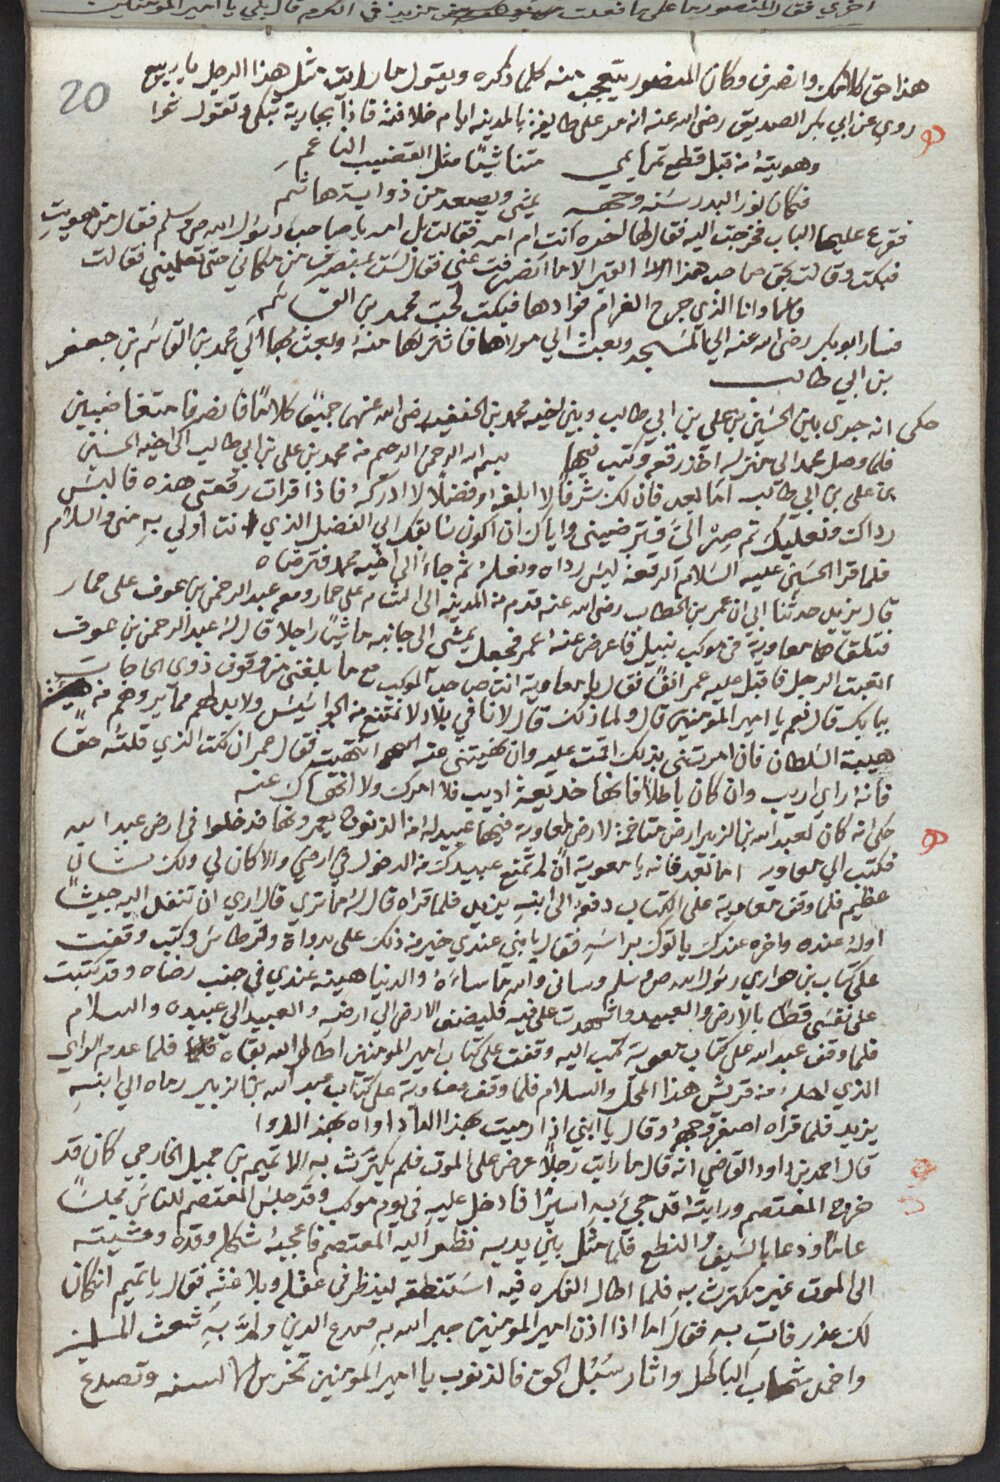 هذا حق كلامك وانصرف وكان المنصور يتعجب منه كلما ذكره ويقول ما رايت مثل هذا الرجل يا ربيع
20
روي عن ابي بكر الصديق رضي الله عنه انه مر على طايفة بالمدينه ايام خلافته فاذا بجارية تبكي وتقول شعرا
وهويته من قبل قطع تمايمي متناشيا مثل القضيب الناعم
فكان نور البدر سنة وجهه يمشي ويصعد من ذوابة هاشم
فقرع عليها الباب فخرجت اليه فقال لها احره انت ام امه فقالت بل امه يا صاحب رسول الله صلى وسلم فقال من هويت
فبكت وقالت بحق صاحب هذا القبر الا ما انصرفت عني فقال لست بمنصرف من مكاني حتى تعلميني فقالت
وانا الذي جرح الغرام فوادها فبكت لحب محمد بن القاسم
فسار ابو بكر رضي الله عنه الى المسجد وبعث الي مولاها فاشتراها منه وبعث بها الي محمد بن القاسم بن جعفر
بن ابي طالب
حكى انه جري بين الحسين بن علي بن ابي طالب وبين اخيه محمد بن الحنفيه رضي الله عنهما جميعا كلاما فانصرفا متغاضبين
فلما وصل محمد الى منزله اخذ رقعه وكتب فيها بسم الله الرحمن الرحيم من محمد بن علي بن ابي طالب الى اخيه الحسين
بن علي بن ابي طالب اما بعد فان لك شرفا لا ابلغه وفضلا لا ادركه فاذا قرات رقعتي هذه فالبس
رداك ونعليك ثم صر الي فترضيني واياك ان اكون سابقك الى الفضل الذي انت اولي به مني والسلام
فلما قرا الحسين عليه السلام الرقعة لبس رداه ونعله ثم جاء الي اخيه محمد فترضاه
قال يزيد حدثنا ابي ان عمر بن الخطاب رضي الله عنه قدم من المدينه الى الشام على حمار ومعه عبد الرحمن بن عوف على حمار
فتلقاهما معاوية في موكب نبيل فاعرض عنه عمر فجعل يمشي الى جانبه ماشيا راجلا قال له عبد الرحمن بن عوف
اتعبت الرجل فاقبل عليه عمر انفا فقال يا معاوية انت صاحب الموكب مع ما بلغني من وقوف ذوي الحاجات
ببابك قال نعم يا امير المؤمنين قال ولما ذلك قال لانا في بلاد لا نمتنع من الجواسيس ولا بد لهم مما يروهم من
هيبة السلطان فان امرتني بذلك اقمت عليه وان نهيتني عنه انتهيت فقال عمر ان كنت الذي قلته حقا
فانه راي اريب وان كان باطلا فانها خديعة اديب فلا امرك ولا انهاك عنه
حكى انه كان لعبد الله بن الزبير ارض متاخمة لارض لمعاوية فيها عبيد له من الزنوج يعمرونها فدخلوا في ارض عبد الله
فكتب الي معاويه اما بعد فانه يا معوية ان لم تمنع عبيدك من الدخول في ارضي والا كان لي ولك شان
عظيم فلما وقف معاوية على الكتاب دفعه الى ابنه يزيد فلما قراه قال له ما تري قال اري ان تنفذ اليه جيشا
اوله عنده واخره عندك ياتوك براسه فقال يا بني عندي خير من ذلك على بدواة وقرطاس وكتب وقفت
على كتاب بن حواري رسول الله صلى وسلم وساني والله ما ساءه والدنيا هينة عندي في جنب رضاه وقد كتبت
على نفسي قطا بالارض والعبيد واشهدت علي فيه فليضف الارض الي ارضه والعبيد الى عبيده والسلام
فلما وقف عبد الله على كتاب معوية كتب اليه وقفت على كتاب امير المومنين اطال الله بقاه فلما عدم الراي
الذي احله من قريش هذا المحل والسلام فلما وقف معاوية على كتاب عبد الله بن الزبير رماه الي ابنه
يزيد فلما قراه اصفر وجهه وقال يا ابني اذا رميت بهذا الداء داواه بهذا الدوا
قال احمد بن داود القاضي انه قال ما رايت رجلا عرض على الموت فلم يكترث به الا تميم بن جميل الخارجي كان قد
خروج المعتصم ورايته قد جيء به اسيرا فادخل عليه في يوم موكب وقد جلس المعتصم للناس مجلسا
عاما ودعا بالسيف والنطع فلما مثل بين يديه نظر اليه المعتصم فاعجبه شكله وقده ومشيته
الى الموت غير مكترث به فلما اطال الفكره فيه استنطقه لينظر في عقله وبلاغته فقال يا تميم ان كان
لك عذر فات به فقال اما اذا اذن امير المومنين جبر الله به صدع الدين ولم به شعث المسلمين
واخمد شهاب الباطل وانار سبل الحق فالذنوب يا امير المومنين تخرس الالسنه وتصدع